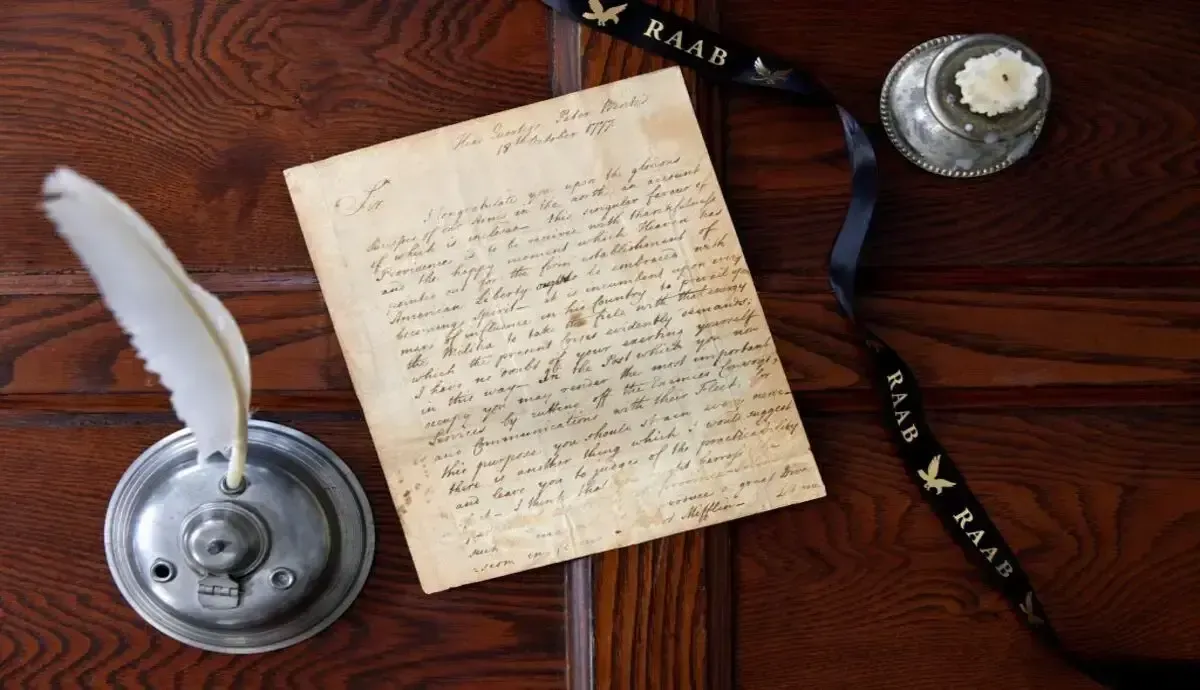 RAAB
Head Quarters Peter Wentz's
18th October 1777
Sir
I Congratulate you upon the glorious
Success of our Arms in the north an account
of which is inclosed. This singular favour of
Providence is to be received with thankfulness
and the happy moment which Heaven has
pointed out for the firm establishment of
American Liberty ought to be embraced with
becoming spirit — it is incumbent upon every
man of influence in his Country to prevail upon
the Militia to take the field with that energy
which the present crisis evidently demands.
I have no doubt of your exerting yourself
in this way — In the Post which you now
occupy you may render the most important
Services by cutting off the Enemies Convoys,
and Communications with their Fleet, for
this purpose you should strain every nerve —
there is another thing which I would suggest
and leave you to judge of the practicability
of it — I think that
a great Drove
Mifflin —
such
RAAB
RAAB